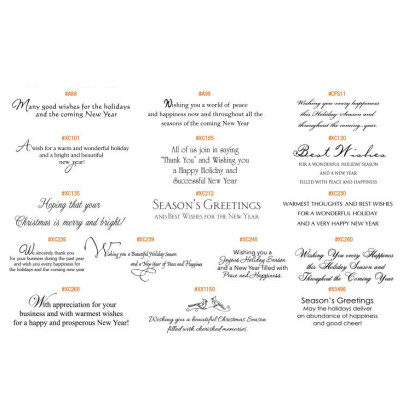 #A88
Many good wishes for the holidays
and the coming New Year
#A99
Wishing you a world of peace
and happiness now and throughout all the
seasons of the coming New Year
#CFS11
Wishing you every happiness
this Holiday Season and
throughout the coming year.
#XC101
A wish for a warm and wonderful holiday
and a bright and beautiful
new year!
#XC105
All of us join in saying
"Thank You" and Wishing you
a Happy Holiday and
Successful New Year
#XC130
Best Wishes
FOR A WONDERFUL HOLIDAY SEASON
AND A NEW YEAR
FILLED WITH PEACE AND HAPPINESS
#XC135
Hoping that your
Christmas is merry and bright!
#XC212
SEASON'S GREETINGS
AND BEST WISHES FOR THE NEW YEAR
#XC230
WARMEST THOUGHTS AND BEST WISHES
FOR A WONDERFUL HOLIDAY
AND A VERY HAPPY NEW YEAR
#XC236
We sincerely thank you
for your business during the past year
and wish you every happiness for
the holidays and the coming new year
#XC239
Wishing you a Beautiful Holiday Season
and a New Year of Peace and Happiness
#XC246
Wishing you a
Joyous Holiday Season
and a New Year filled with
Peace and Happiness.
#XC260
Wishing You every Happiness
this Holiday Season and
Throughout the Coming Year
#XC268
With appreciation for your
business and with warmest wishes
for a happy and prosperous New Year!
#XX1150
Wishing you a beautiful Christmas Season
filled with cherished memories.
#X3496
Season's Greetings
May the holidays deliver
an abundance of happiness
and good cheer!